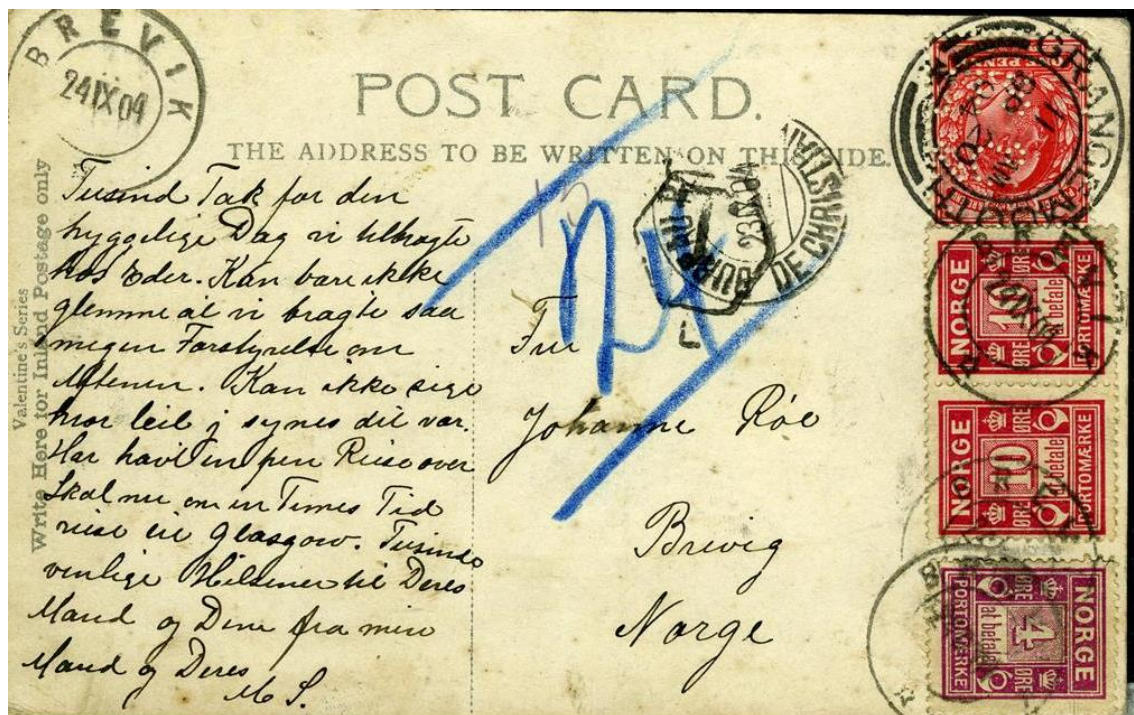 BREVIK
24 IX 04
POST CARD.
THE ADDRESS TO BE WRITTEN ON THIS SIDE.
Valentine's Series
Write Here for Inland Postage only
Tusind Tak for den
hyggelige Dag vi tilbragte
hos Eder. Kan bare ikke
glemme at vi bragte saa
megen Forstyrelse om
Aftenen. Kan ikke sige
hvor leit j synes dit var.
Har havt en pen Reise over
Skal nu om en Times Tid
reise til Glasgow. Tusinde
venlige Hilsener til Deres
Mand og Dem fra min
Mand og Deres
M S.
24
T
L
Fru
Johanne Röe
Brevig
Norge
GRANGEMOUTH
NORGE
10
ØRE
at betale
PORTOMÆRKE
NORGE
10
ØRE
at betale
PORTOMÆRKE
NORGE
4
ØRE
at betale
PORTOMÆRKE